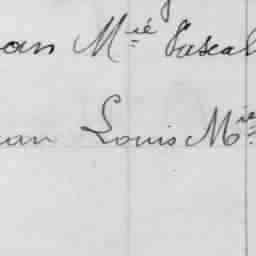 an Mié Pascal
an Louis Mie